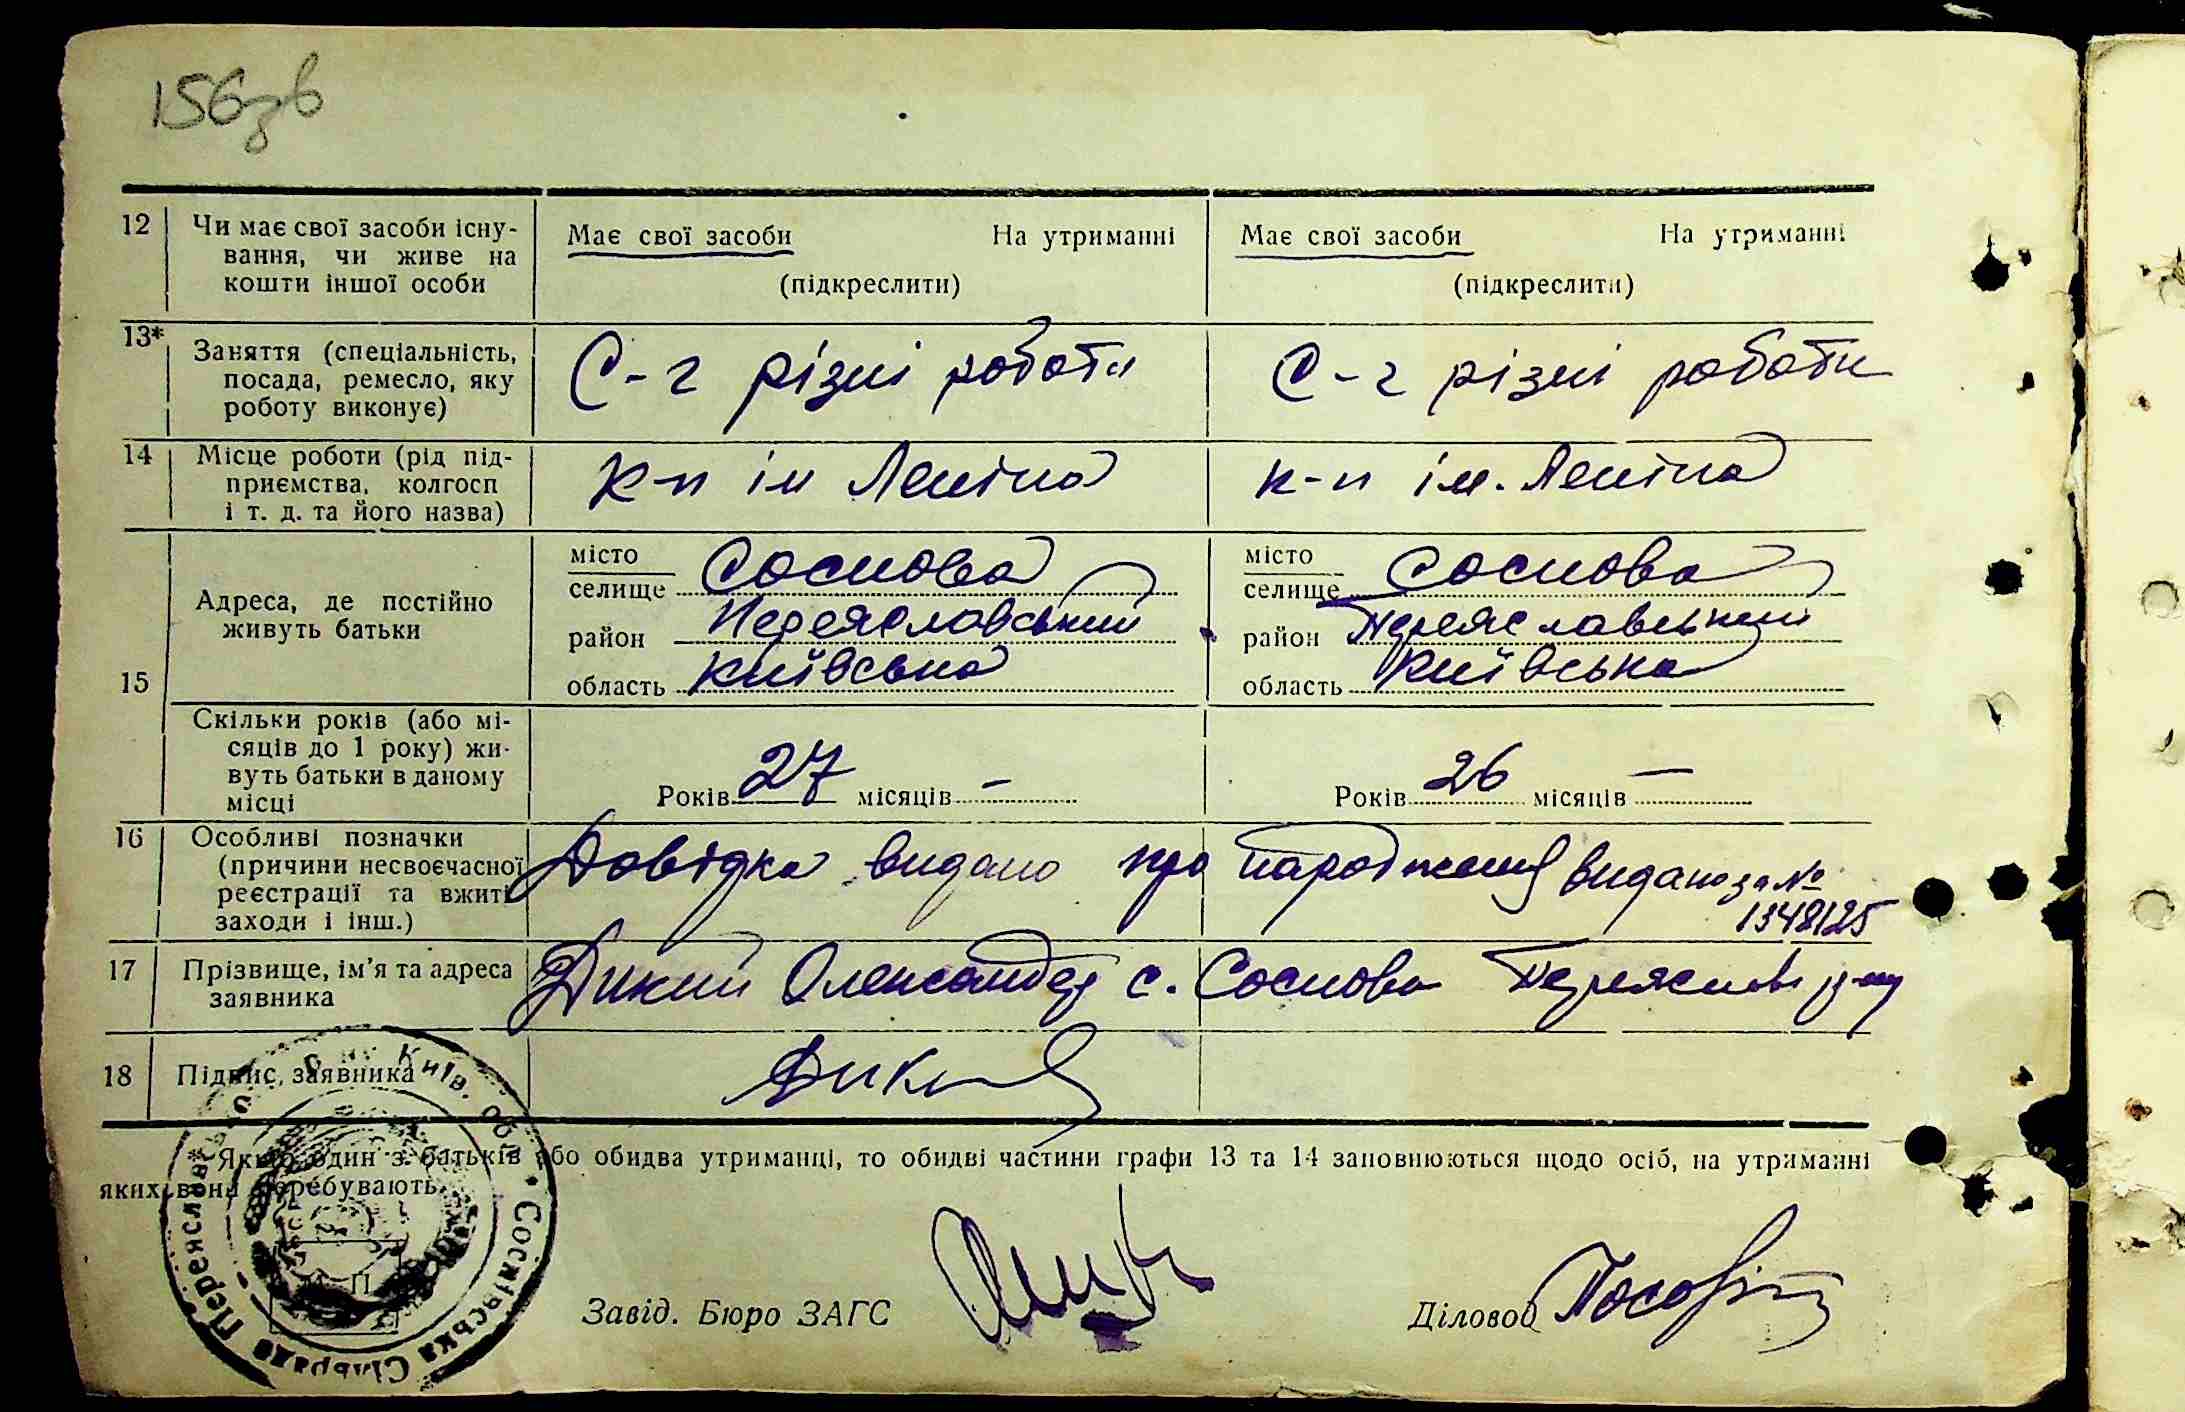 156зв
12 Чи має свої засоби існу- Має свої засоби На утриманні Має свої засоби На утриманні
вання, чи живе на
кошти іншої особи (підкреслити) (підкреслити)
13* Заняття (спеціальність, С-г різні роботи С-г різні роботи
посада, ремесло, яку
роботу виконує)
14 Місце роботи (рід під- К-п ім Леніна К-п ім. Леніна
приємства, колгосп
і т. д. та його назва)
15 Адреса, де постійно живуть батьки
місто селище Соснова місто селище Соснова
район Переяславський район Переяславський
область Київська область Київська
Скільки років (або мі-
сяців до 1 року) жи-
вуть батьки в даному
місці Років 27 місяців — Років 26 місяців —
16 Особливі позначки Довідка видано про народження видано за №
(причини несвоєчасної 1348125
реєстрації та вжиті
заходи і інш.)
17 Прізвище, ім'я та адреса Дикий Олександр с. Соснова Переяслав р-ну
заявника
18 Підпис, заявника Дикий
Якщо один з батьків або обидва утриманці, то обидві частини графи 13 та 14 заповнюються щодо осіб, на утриманні
яких вони перебувають.
Завід. Бюро ЗАГС Діловод
Соснівська Сільрада Переяслав Київ. обл.
М. П.